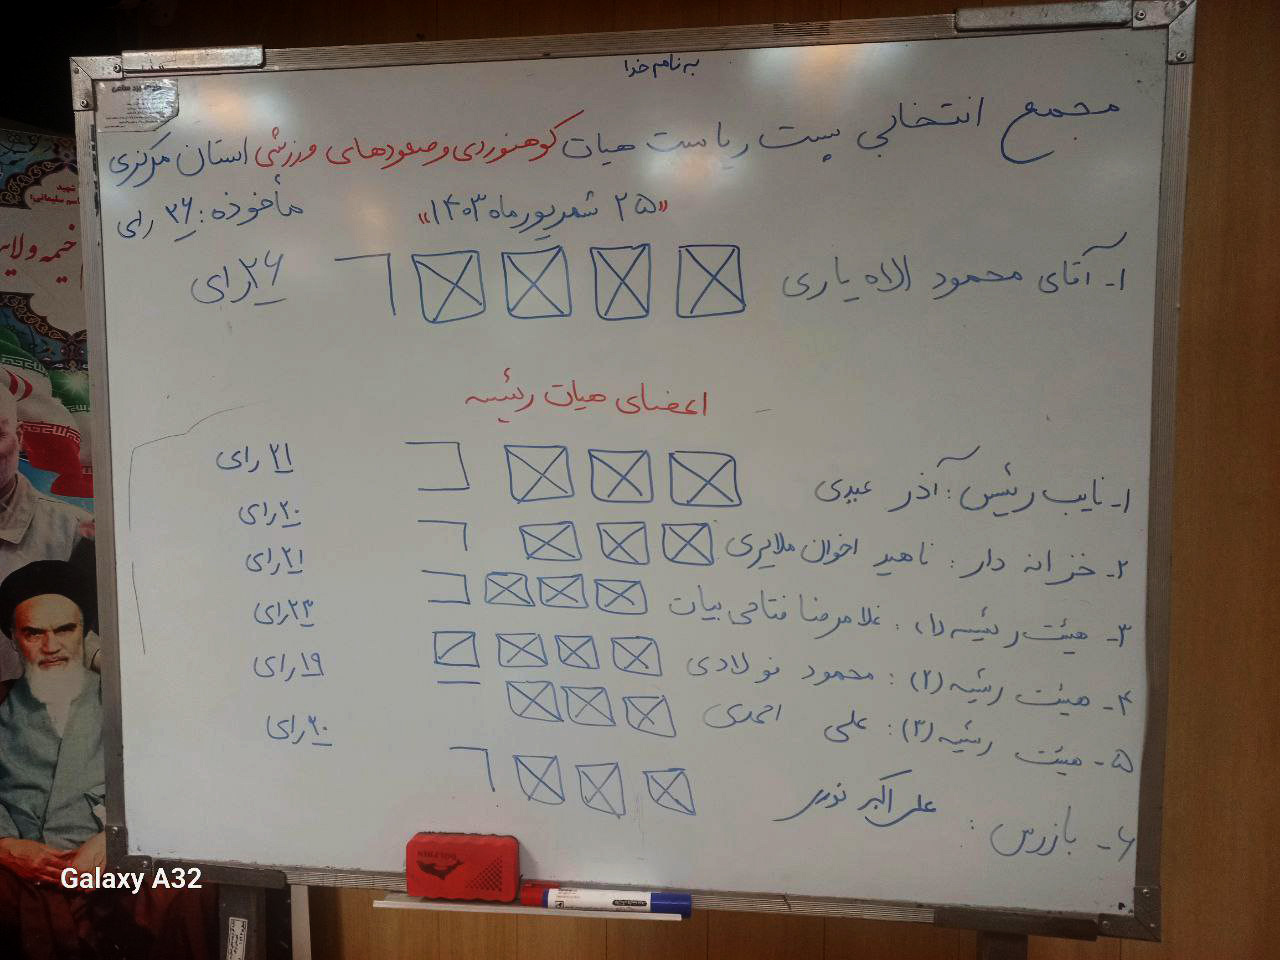 به نام خدا
مجمع انتخابی پست ریاست هیات کوهنوردی و صعودهای ورزشی استان مرکزی
«۲۵ شهریور ماه ۱۴۰۳»
مأخوذه: ۲۶ رای
۱- آقای محمود الاه یاری ۲۶ رای
اعضای هیات رئیسه
۱- نایب رئیس: آذر عبدی ۲۱ رای
۲- خزانه دار: ناهید اخوان ملایری ۲۰ رای
۳- هیئت رئیسه (۱): غلامرضا فتاحی بیات ۲۱ رای
۴- هیئت رئیسه (۲): محمود فولادی ۲۳ رای
۵- هیئت رئیسه (۳): علی احمدی ۱۹ رای
۶- بازرس: علی اکبر نوری ۲۰ رای
شهید
قاسم سلیمانی
خیمه ولایت
DOLPHIN
Galaxy A32